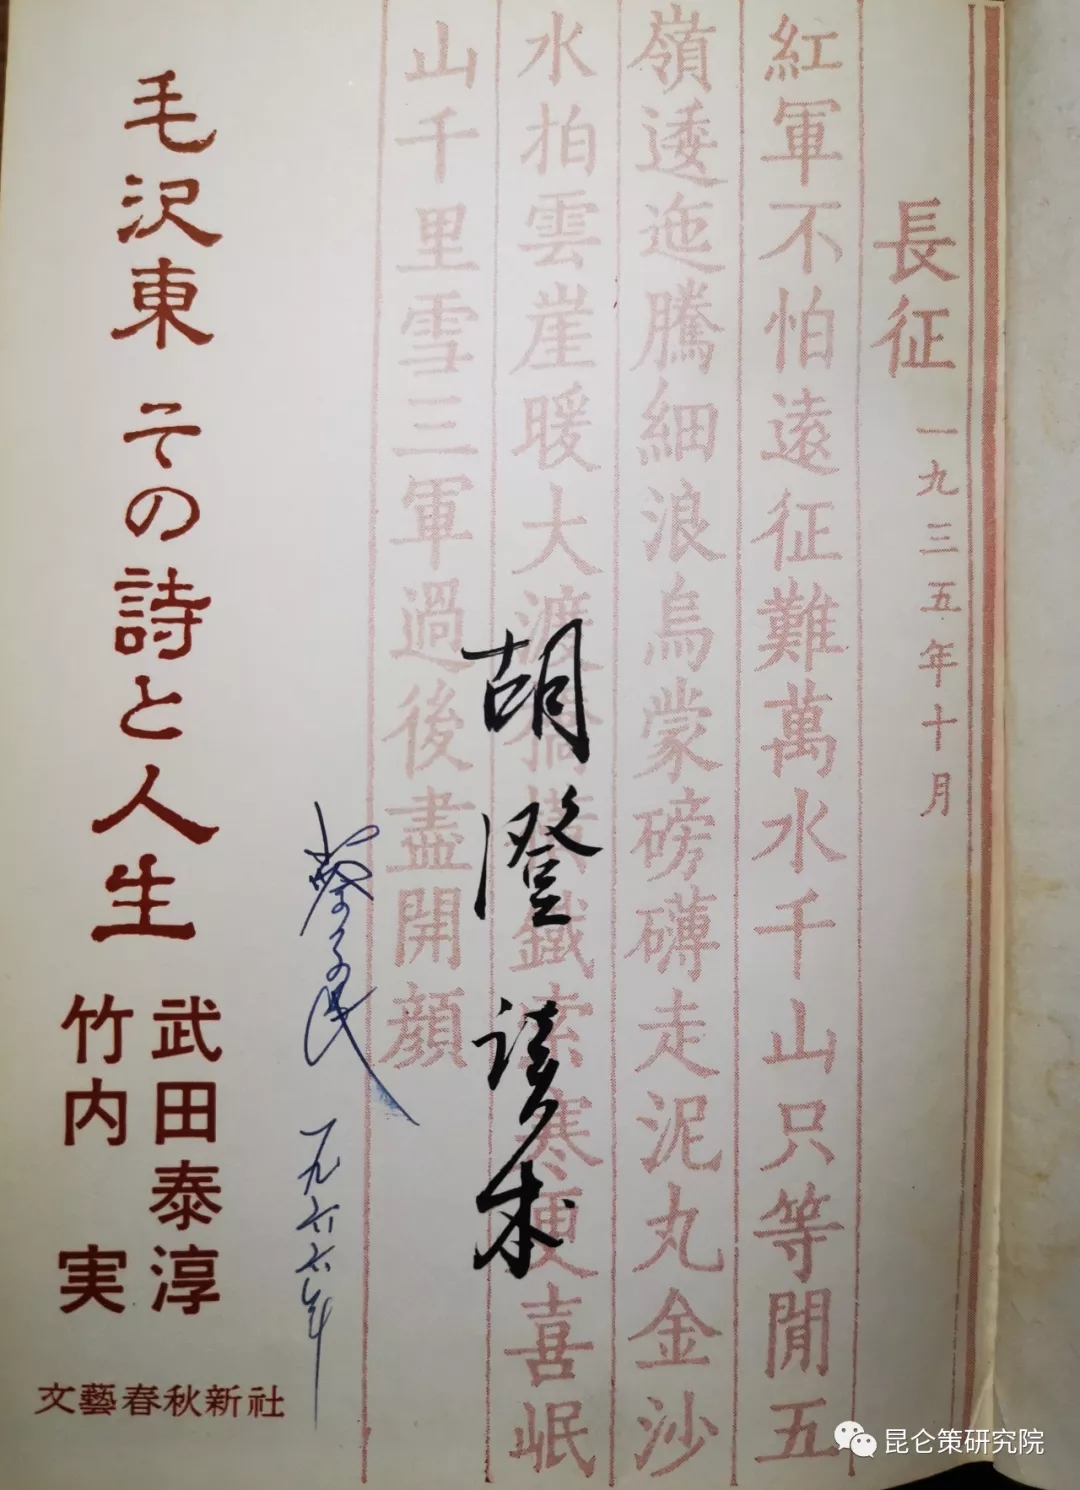 長征 一九三五年十月
紅軍不怕遠征難萬水千山只等閒五
嶺逶迤騰細浪烏蒙磅礴走泥丸金沙
水拍雲崖暖大渡橋橫鐵索寒更喜岷
山千里雪三軍過後盡開顔
胡澄读
蔡子民 一九六六年
毛沢東 その詩と人生
武田泰淳
竹内 実
文藝春秋新社
昆仑策研究院